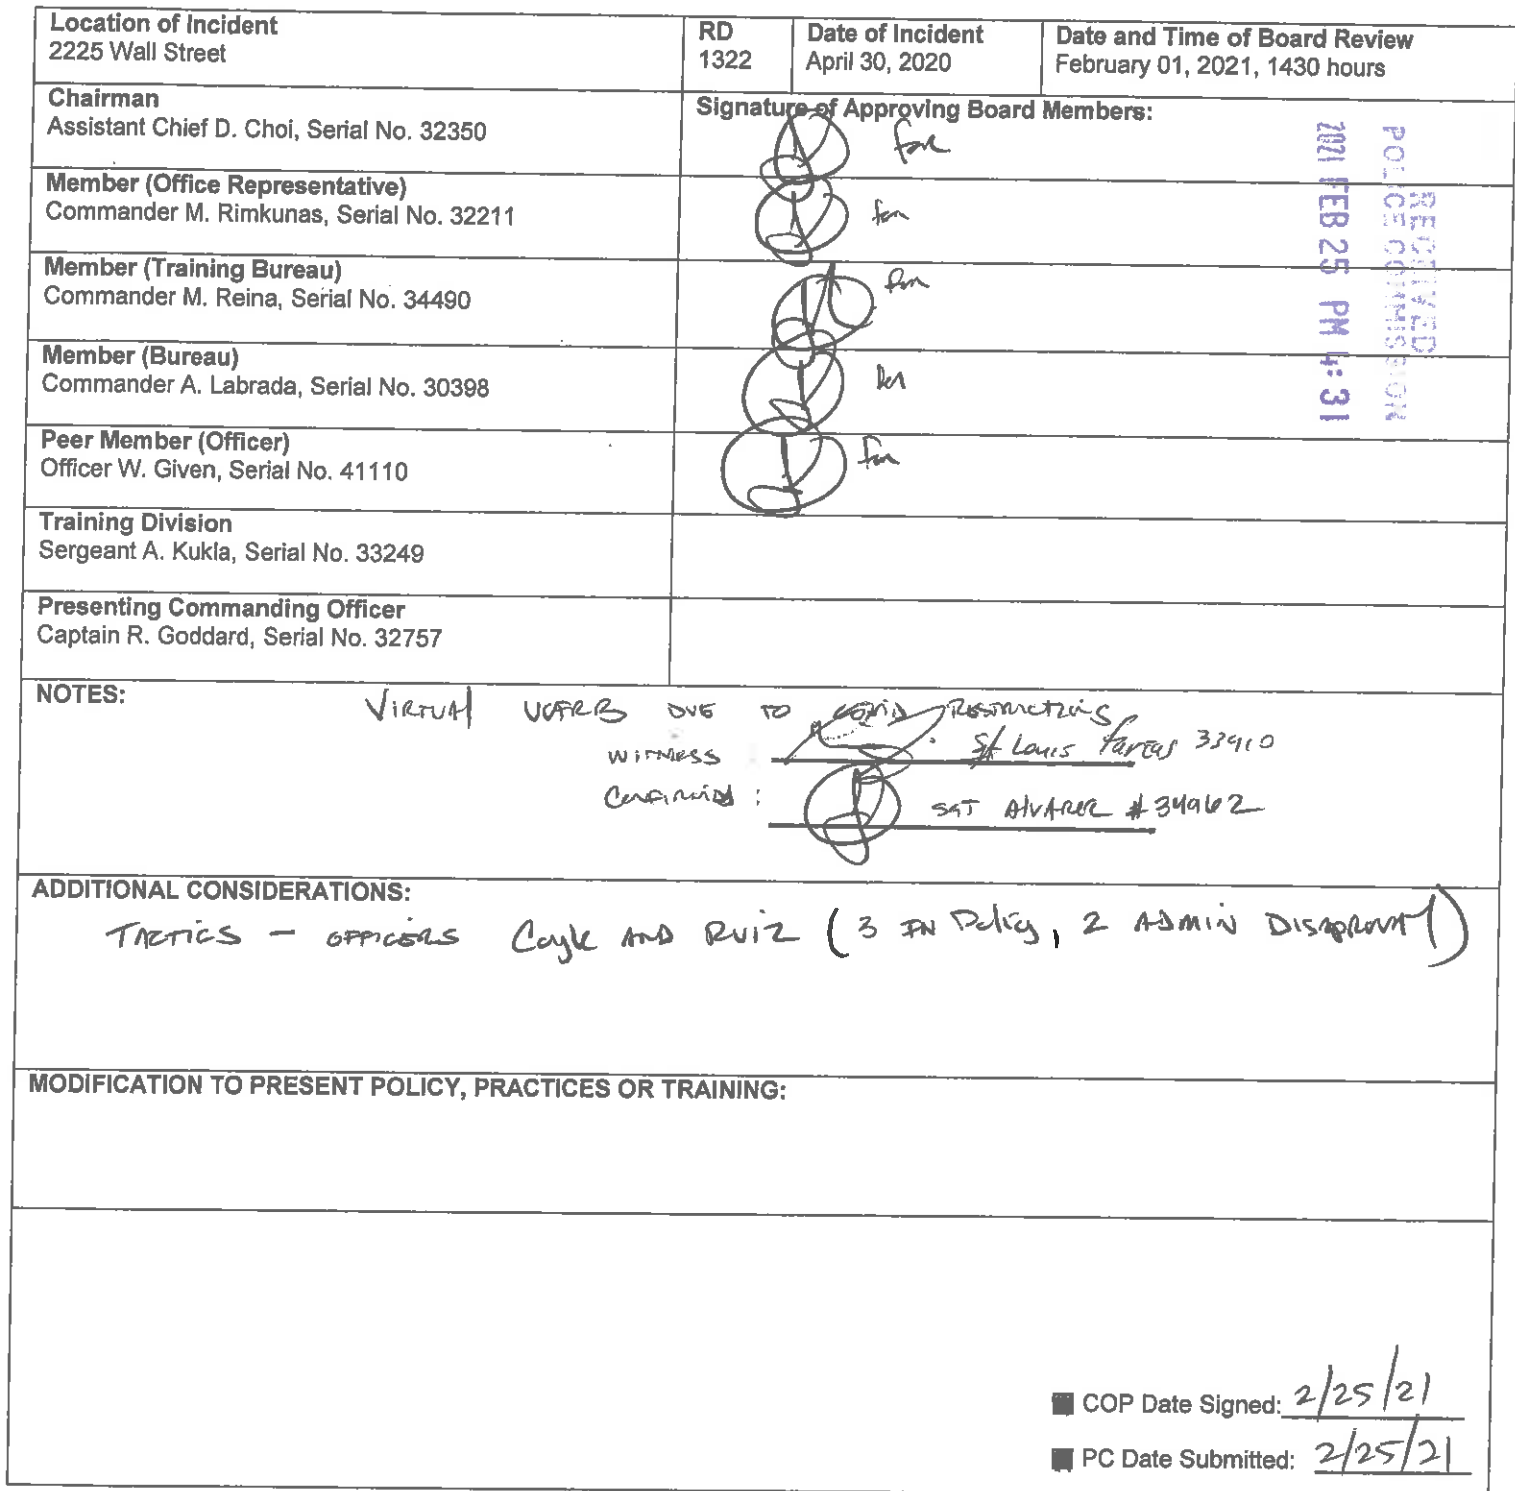 Location of Incident
2225 Wall Street
RD
1322
Date of Incident
April 30, 2020
Date and Time of Board Review
February 01, 2021, 1430 hours
Chairman
Assistant Chief D. Choi, Serial No. 32350
Signature of Approving Board Members:
for
Member (Office Representative)
Commander M. Rimkunas, Serial No. 32211
for
Member (Training Bureau)
Commander M. Reina, Serial No. 34490
for
Member (Bureau)
Commander A. Labrada, Serial No. 30398
for
Peer Member (Officer)
Officer W. Given, Serial No. 41110
for
RECEIVED
POLICE COMMISSION
2021 FEB 25 PM 4:31
Training Division
Sergeant A. Kukla, Serial No. 33249
Presenting Commanding Officer
Captain R. Goddard, Serial No. 32757
NOTES:
VIRTUAL UOFRB DUE TO COVID RESTRICTIONS
WITNESS Louis 33910
SGT ALVAREZ #34962
ADDITIONAL CONSIDERATIONS:
TACTICS - OFFICERS Coyle AND RUIZ (3 IN Policy, 2 ADMIN DISAPPROVAL)
MODIFICATION TO PRESENT POLICY, PRACTICES OR TRAINING:
COP Date Signed: 2/25/21
PC Date Submitted: 2/25/21